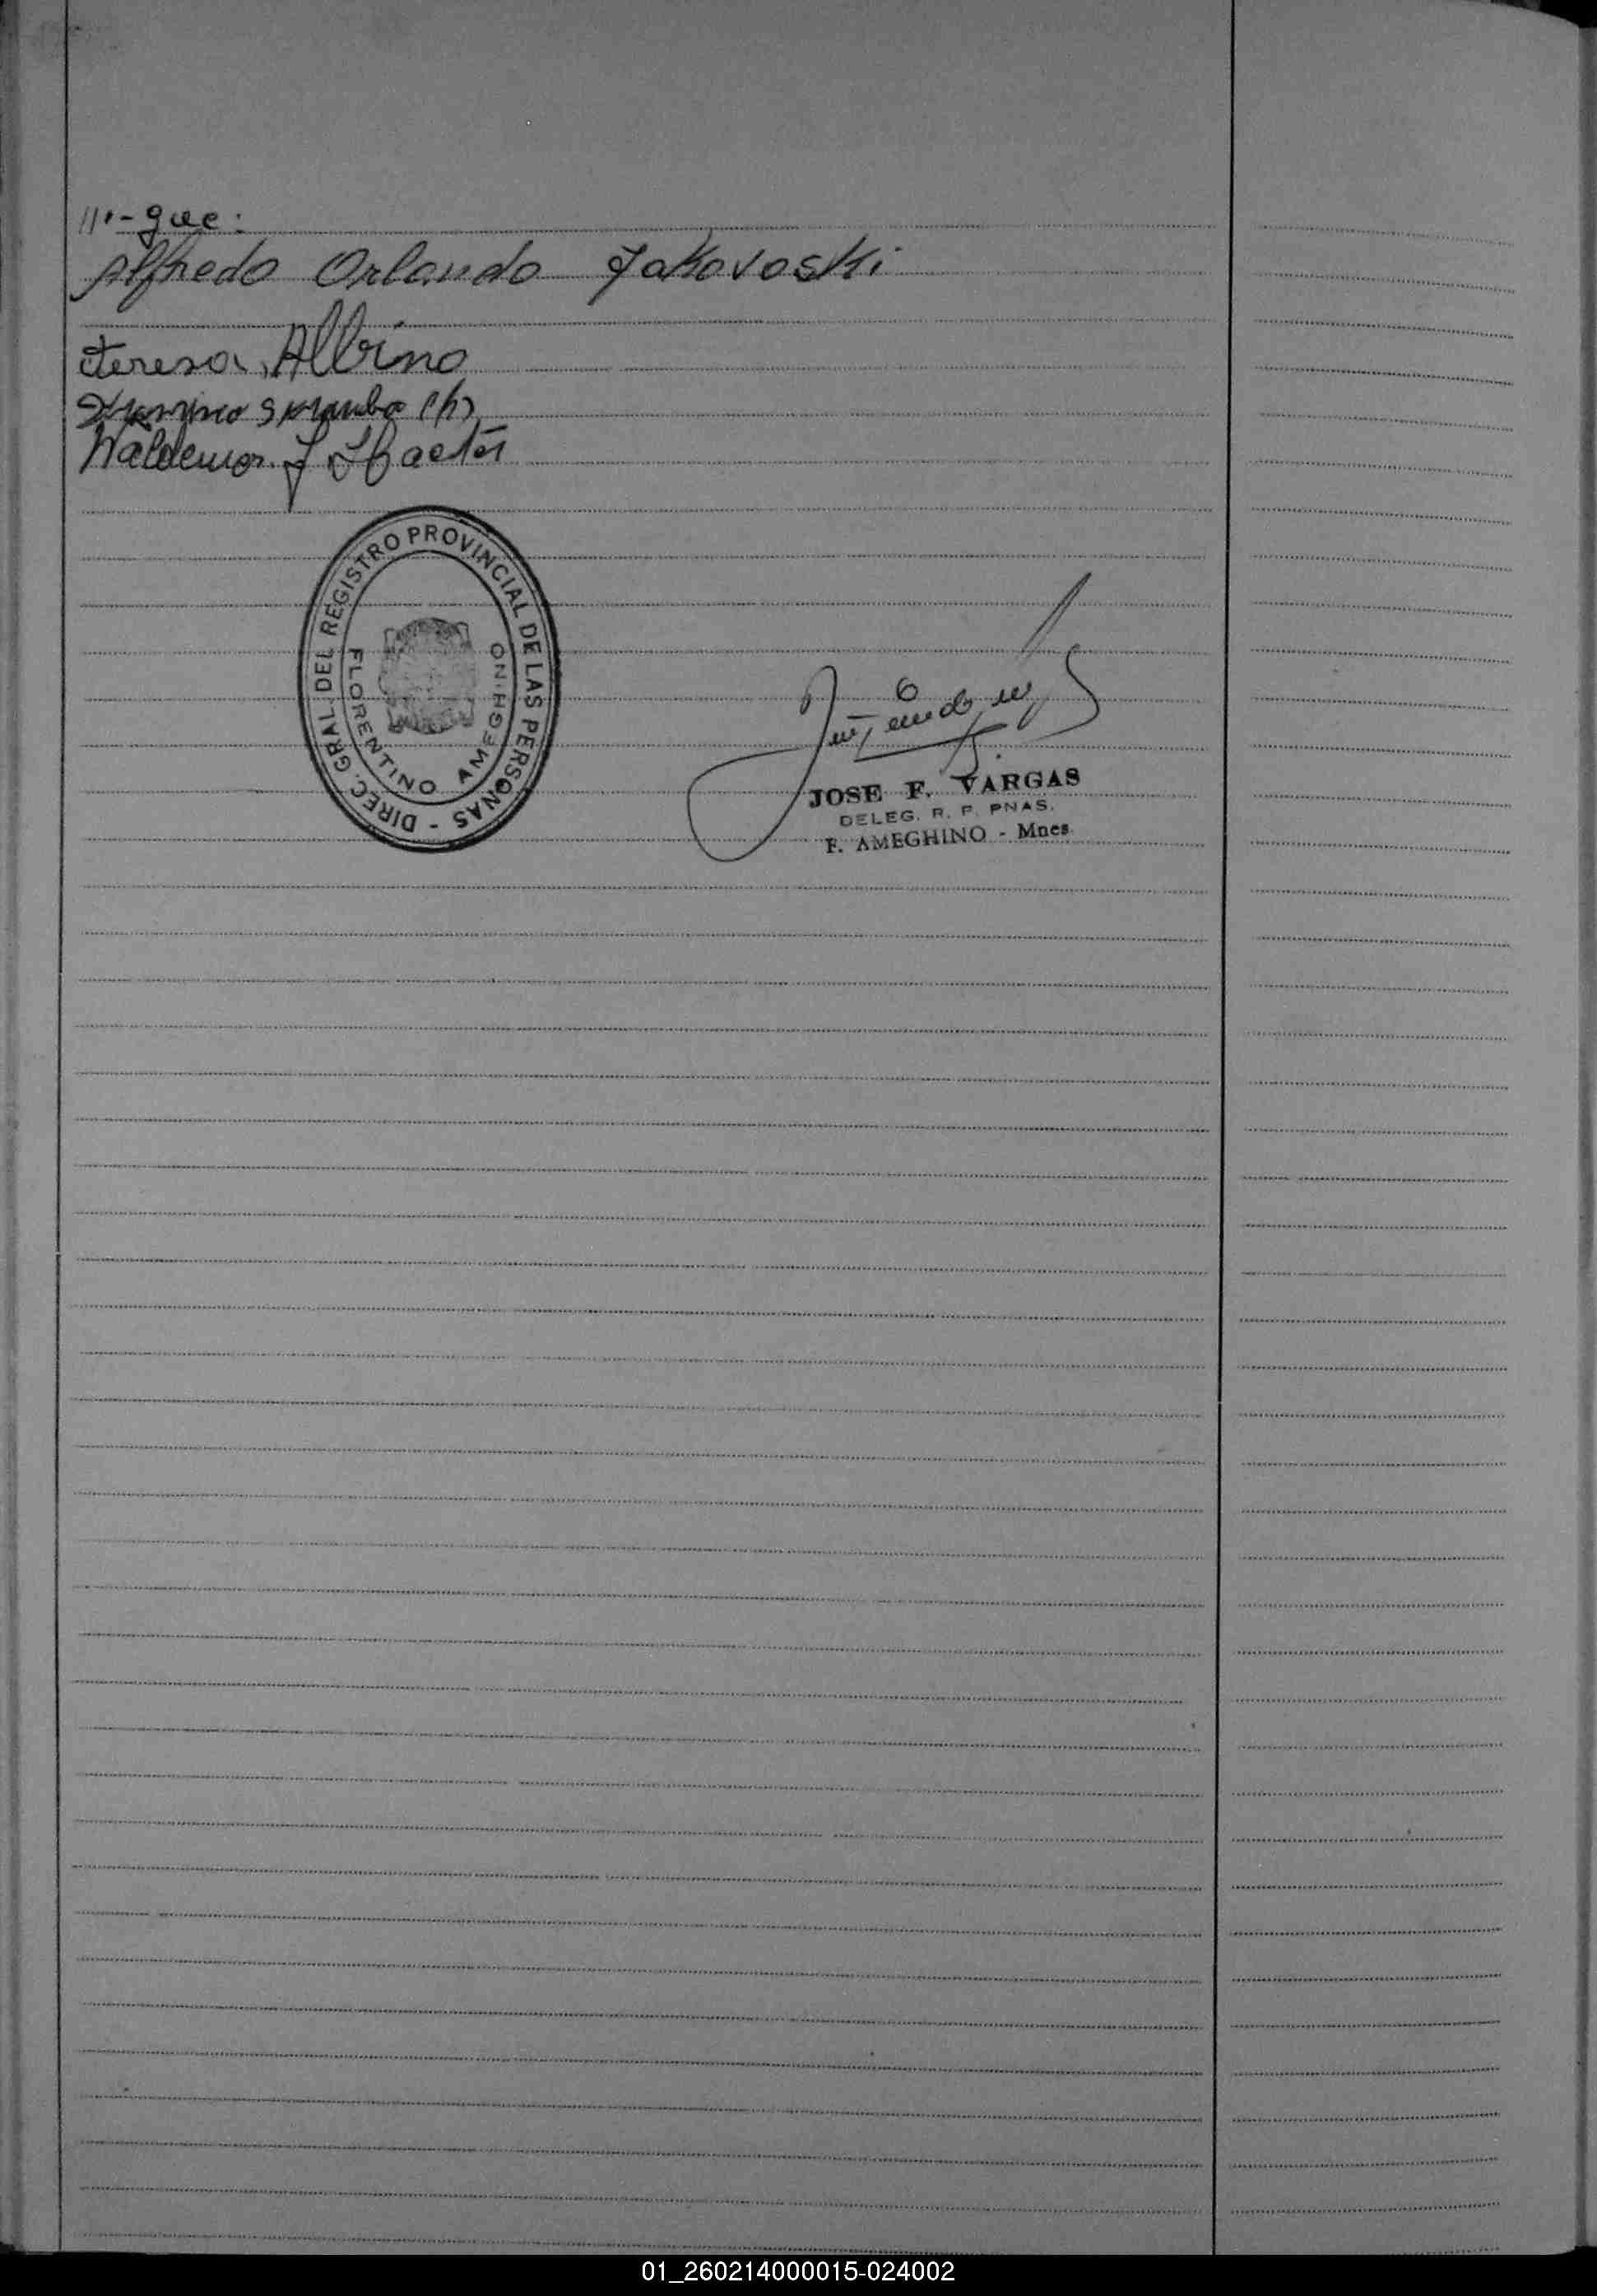 ///-gue:
Alfredo Orlando Jakovoski
Teresa Albino
(h)
Waldemar J
DIREC. GRAL. DEL REGISTRO PROVINCIAL DE LAS PERSONAS -
FLORENTINO AMEGHINO
JOSE F. VARGAS
DELEG. R. P. PNAS.
F. AMEGHINO - Mnes.
01_260214000015-024002